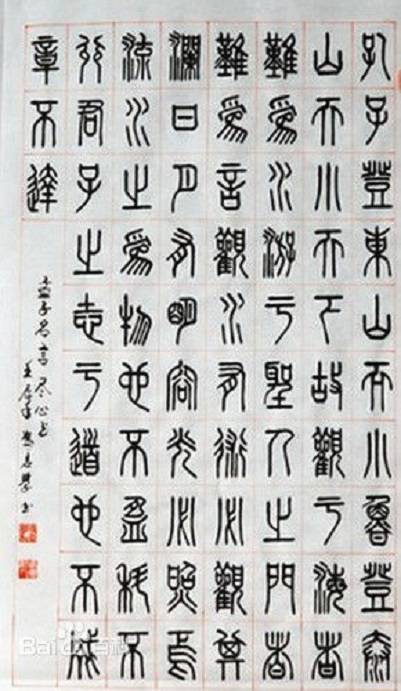 孔子登東山而小魯登泰
山而小天下故觀于海者
難爲水游于聖人之門者
難爲言觀水有術必觀其
瀾日月有明容光必照焉
流水之爲物也不盈科不
行君子之志于道也不成
章不達
孟子名言尽心上
Baidu百科